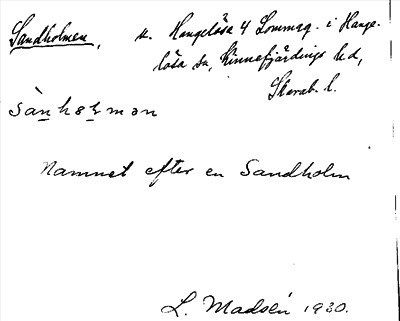 Sandholmen, u. Hangelösa 4 Sommag. i Hange-
lösa sn, Kinnefjärdings hd,
Skarab. l.
sànhολmən
Namnet efter en Sandholm
L. Madsén 1930.